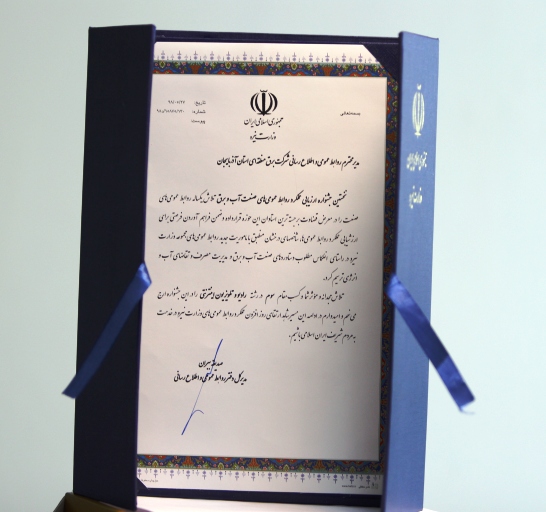 بسمه‌تعالی
جمهوری اسلامی ایران
وزارت نیرو
تاریخ:
شماره:
پیوست:
مدیر محترم روابط عمومی و اطلاع رسانی شرکت برق منطقه‌ای استان آذربایجان
نخستین جشنواره ارزیابی عملکرد روابط عمومی‌های صنعت آب و برق تلاش یکساله روابط عمومی‌های
صنعت را در معرض قضاوت برجسته‌ترین استادان این حوزه قرار داده و ضمن فراهم آوردن فرصتی برای
ارزشیابی عملکرد روابط عمومی‌ها، شاخصهای درخشان منطبق با ماموریت جدید روابط عمومی‌های مجموعه وزارت
نیرو در راستای انعکاس مطلوب دستاوردهای صنعت آب و برق و مدیریت مصرف و تقاضای آب و
انرژی ترسیم کرد.
تلاش مجدانه و موثر شما و کسب مقام سوم در رشته رادیو و تلویزیون اینترنتی را در این جشنواره ارج
می‌نهم و امیدوارم در ادامه این مسیر شاهد ارتقای روز افزون عملکرد روابط عمومی‌های وزارت نیرو در خدمت
به مردم شریف ایران اسلامی باشیم.
مدیرکل دفتر روابط عمومی و اطلاع رسانی
جمهوری اسلامی ایران
وزارت نیرو